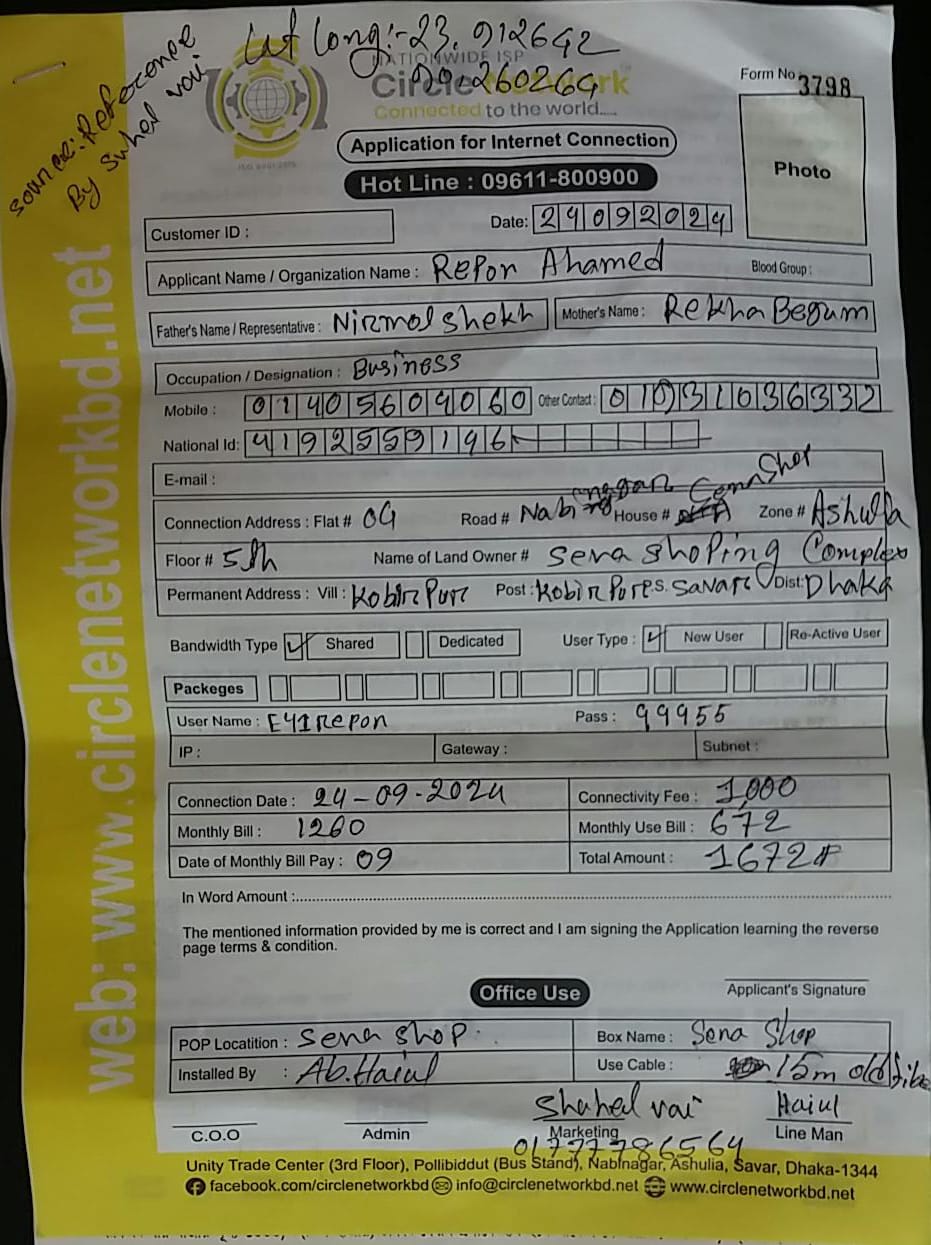 Source: Reference
By Suhel vai
Lat Long:-23.912642
90.260264
NATIONWIDE ISP
Circle Network
Connected to the world.....
ISO 9001:2015
Form No 3798
Photo
Application for Internet Connection
Hot Line : 09611-800900
Customer ID :
Date: 24092024
Applicant Name / Organization Name : Repon Ahamed Blood Group :
Father's Name / Representative : Nirmol Shekh Mother's Name : Rekha Begum
Occupation / Designation : Business
Mobile : 01405604060 Other Contact :
National Id: 4192559196
E-mail :
Connection Address : Flat # 04 Road # Nabinagar House # Sena Shop Zone # Ashulia
Floor # 5th Name of Land Owner # Sena Shoping Complex
Permanent Address : Vill : Kobirpur Post : Kobirpur P.S. Savar Dist: Dhaka
Bandwidth Type ✓ Shared Dedicated User Type : ✓ New User Re-Active User
Packeges
User Name : E41Repon Pass : 99955
IP : Gateway : Subnet :
Connection Date : 24-09-2024 Connectivity Fee : 1,000
Monthly Bill : 1260 Monthly Use Bill : 672
Date of Monthly Bill Pay : 09 Total Amount : 1672
In Word Amount :
The mentioned information provided by me is correct and I am signing the Application learning the reverse
page terms & condition.
Applicant's Signature
Office Use
POP Locatition : Sena Shop. Box Name : Sena Shop
Installed By : Ab. Haiul Use Cable : 15m old fibe
Shahed vai Haiul
C.O.O Admin Marketing Line Man
01777786564
Unity Trade Center (3rd Floor), Pollibiddut (Bus Stand), Nabinagar, Ashulia, Savar, Dhaka-1344
facebook.com/circlenetworkbd info@circlenetworkbd.net www.circlenetworkbd.net
web: www.circlenetworkbd.net